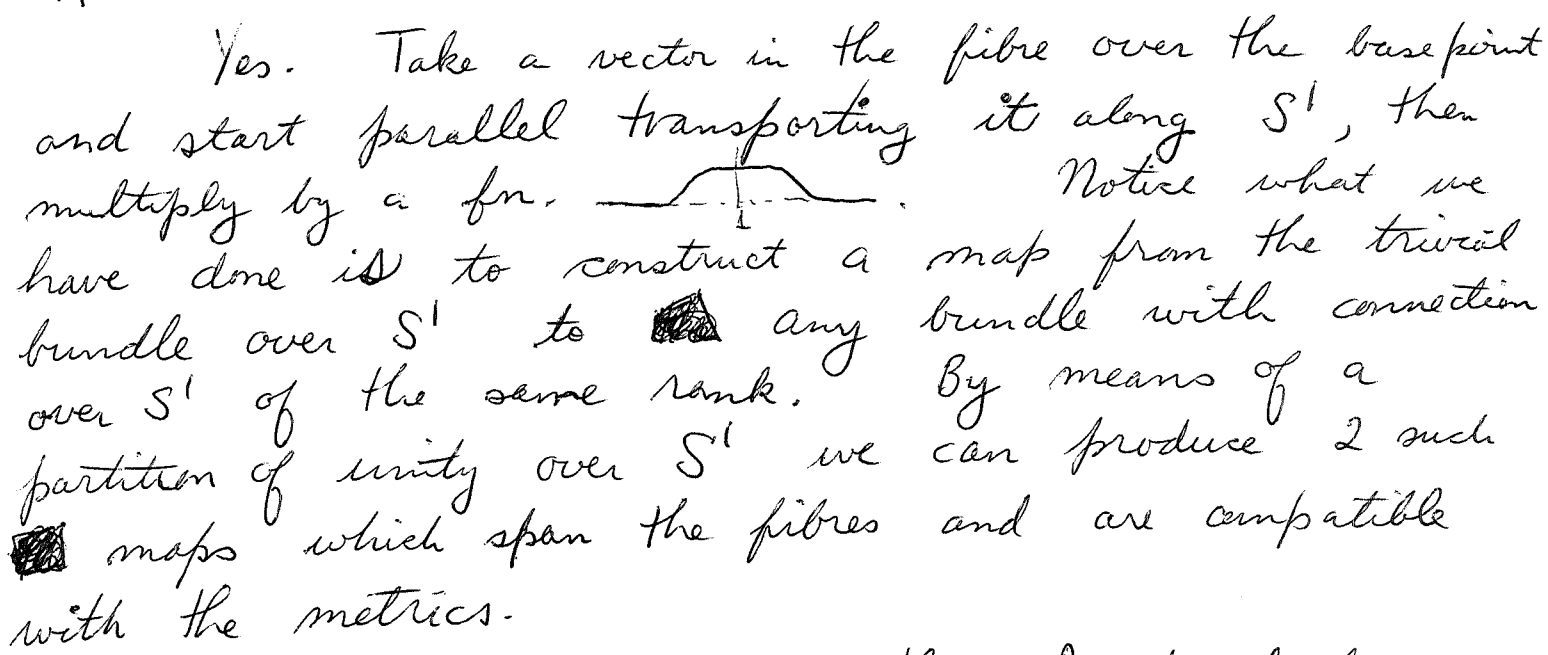 Yes. Take a vector in the fibre over the basepoint
and start parallel transporting it along S¹, then
multiply by a fn. 1 . Notice what we
have done is to construct a map from the trivial
bundle over S¹ to any bundle with connection
over S¹ of the same rank. By means of a
partition of unity over S¹ we can produce 2 such
maps which span the fibres and are compatible
with the metrics.